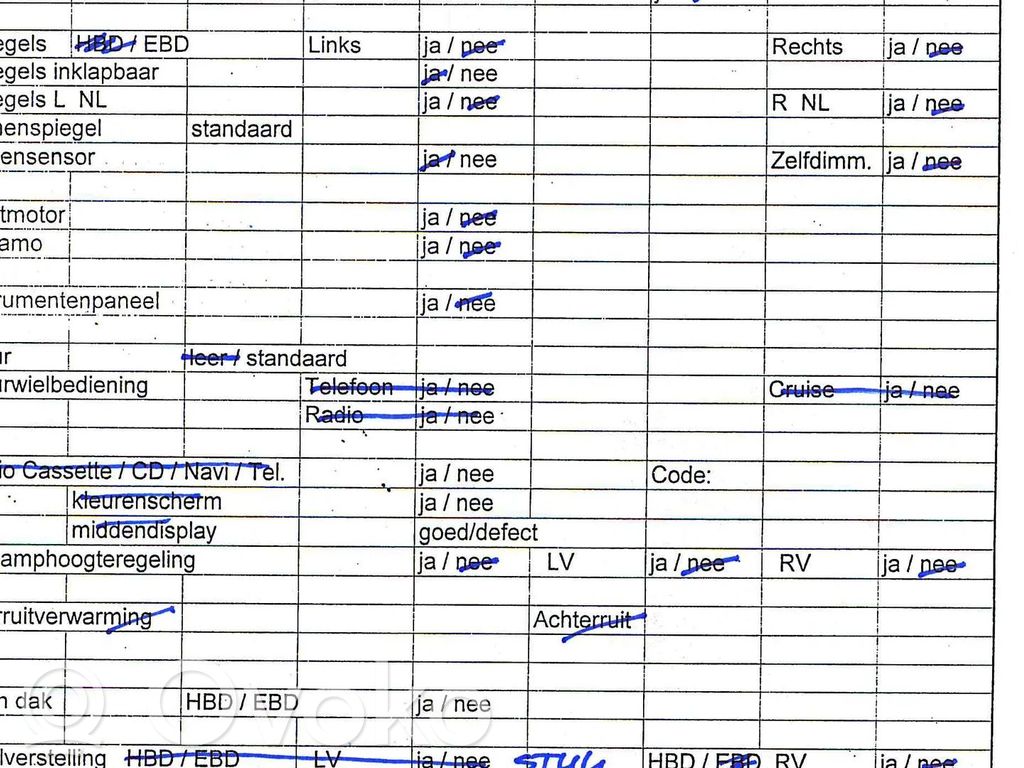 egels HBD / EBD Links ja / nee Rechts ja / nee
egels inklapbaar ja / nee
egels L NL ja / nee R NL ja / nee
nenspiegel standaard
ensensor ja / nee Zelfdimm. ja / nee
tmotor ja / nee
amo ja / nee
rumentenpaneel ja / nee
ur leer / standaard
urwielbediening Telefoon ja / nee Cruise ja / nee
Radio ja / nee
io Cassette / CD / Navi / Tel. ja / nee Code:
kleurenscherm ja / nee
middendisplay goed/defect
amphoogteregeling ja / nee LV ja / nee RV ja / nee
rruitverwarming Achterruit
n dak HBD / EBD ja / nee
Ovoko
lverstelling HBD / EBD LV ja / nee STUU HBD / EBD RV ja / nee